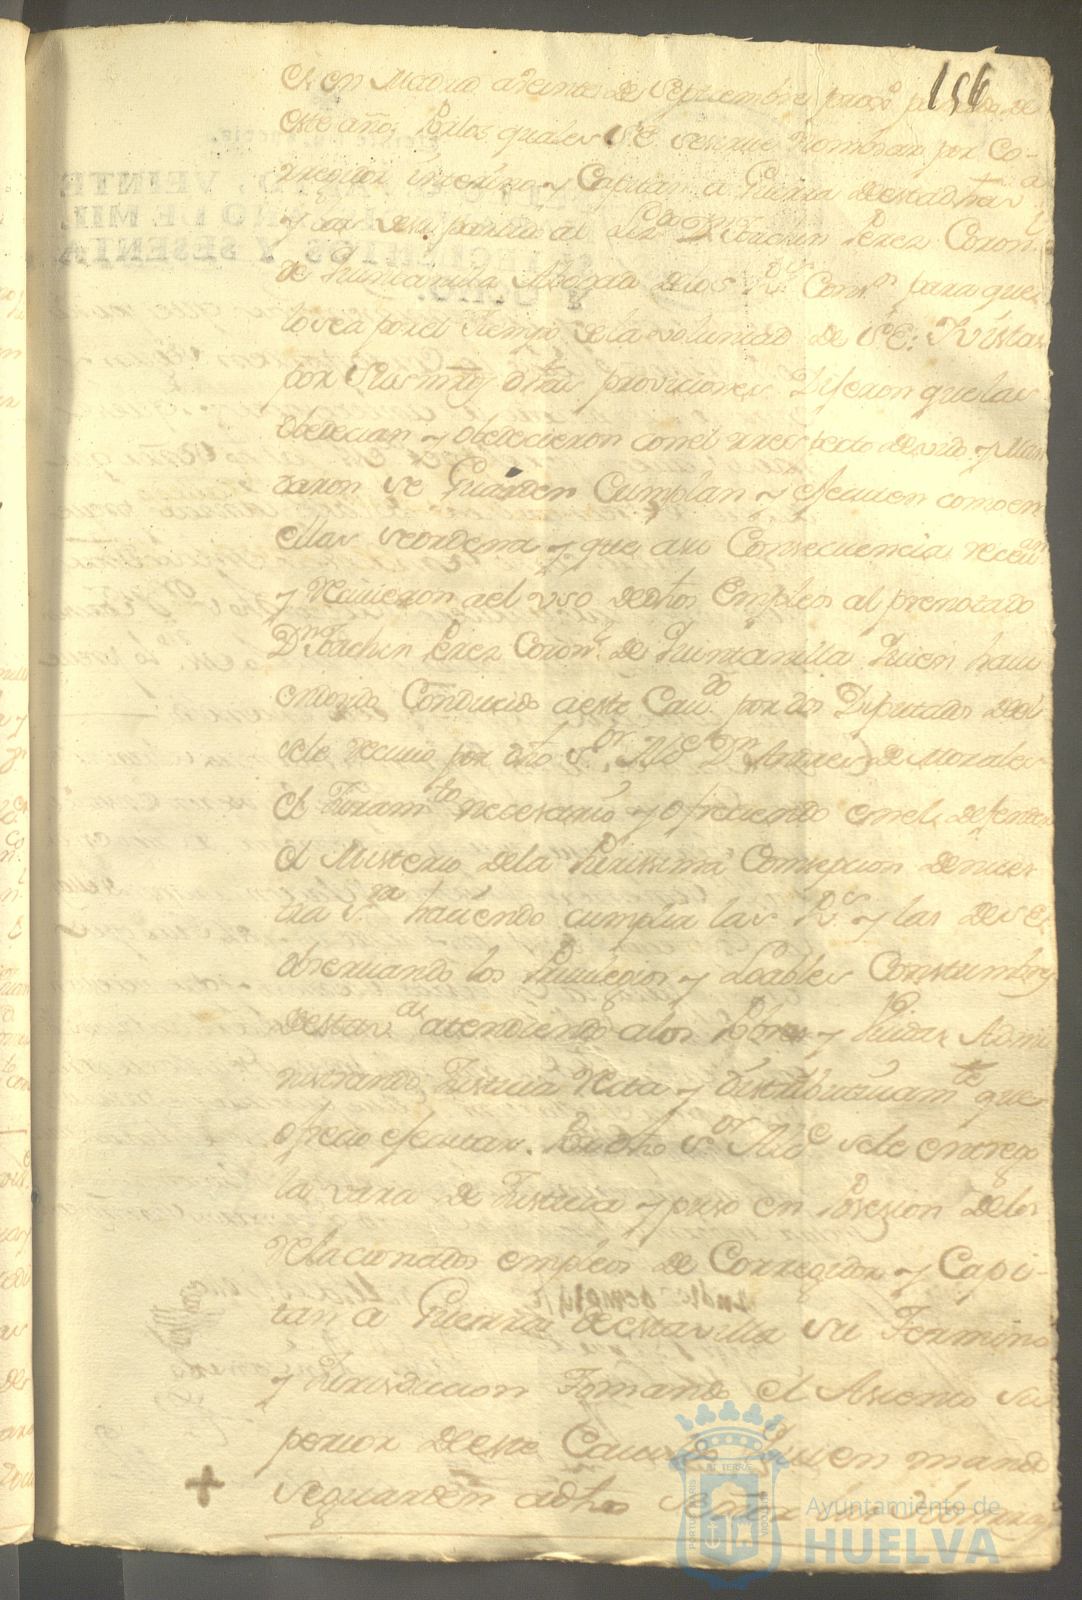 156
el en Madrid a Veinte de Septiembre proxº pasado de
este año, Por los quales S.E. se sirve Nombrar por Co-
rregidor interino y Capitan a Guerra de esta dha vª
y las de su partido al Lizdo Dn Joachin Perez Coronl
de Quintanilla Abogado de los Rs Consos para que
lo sea por el tiempo de la voluntad de S.E: Y vistas
por sus mrds dhas provisiones Dijeron que las
obedecian y obedecieron con el rrespecto devido y Man
daron se Guarden Cumplan y ejecuten como en
ellas se ordena y que a su Consecuencia reciven
y recivieron a el uso de dhos Empleos al prenotado
Dn Joachin Perez Coronl de Quintanilla Quien havi
endo sido Conducido a este Cavdo por dos Diputados del
se le recivio por dho Sor Alce Dn Andres de Morales
el Juramto necesario y ofreciendo en el defender
el Misterio de la Purissima Consepcion de nues
tra Sra haciendo cumplir las Rs y las de S.E.
observando los Privilegios y Loables Constumbres
desta va atendiendo a los Pobres y Viudas Admi
nistrando Justicia Recta y distributivamte que
ofrecio ejecutar. Por dho Sor Alce se le entrego
la vara de Justicia y puso en Posesion de los
relacionados empleos de Corregidor y Capi-
tan a Guerra de esta villa su Termino
y Jurisdiccion Tomando el Asiento su
perior de este Cavildo Quien mando
se guarden a dho Señor las
Ayuntamiento de
HUELVA